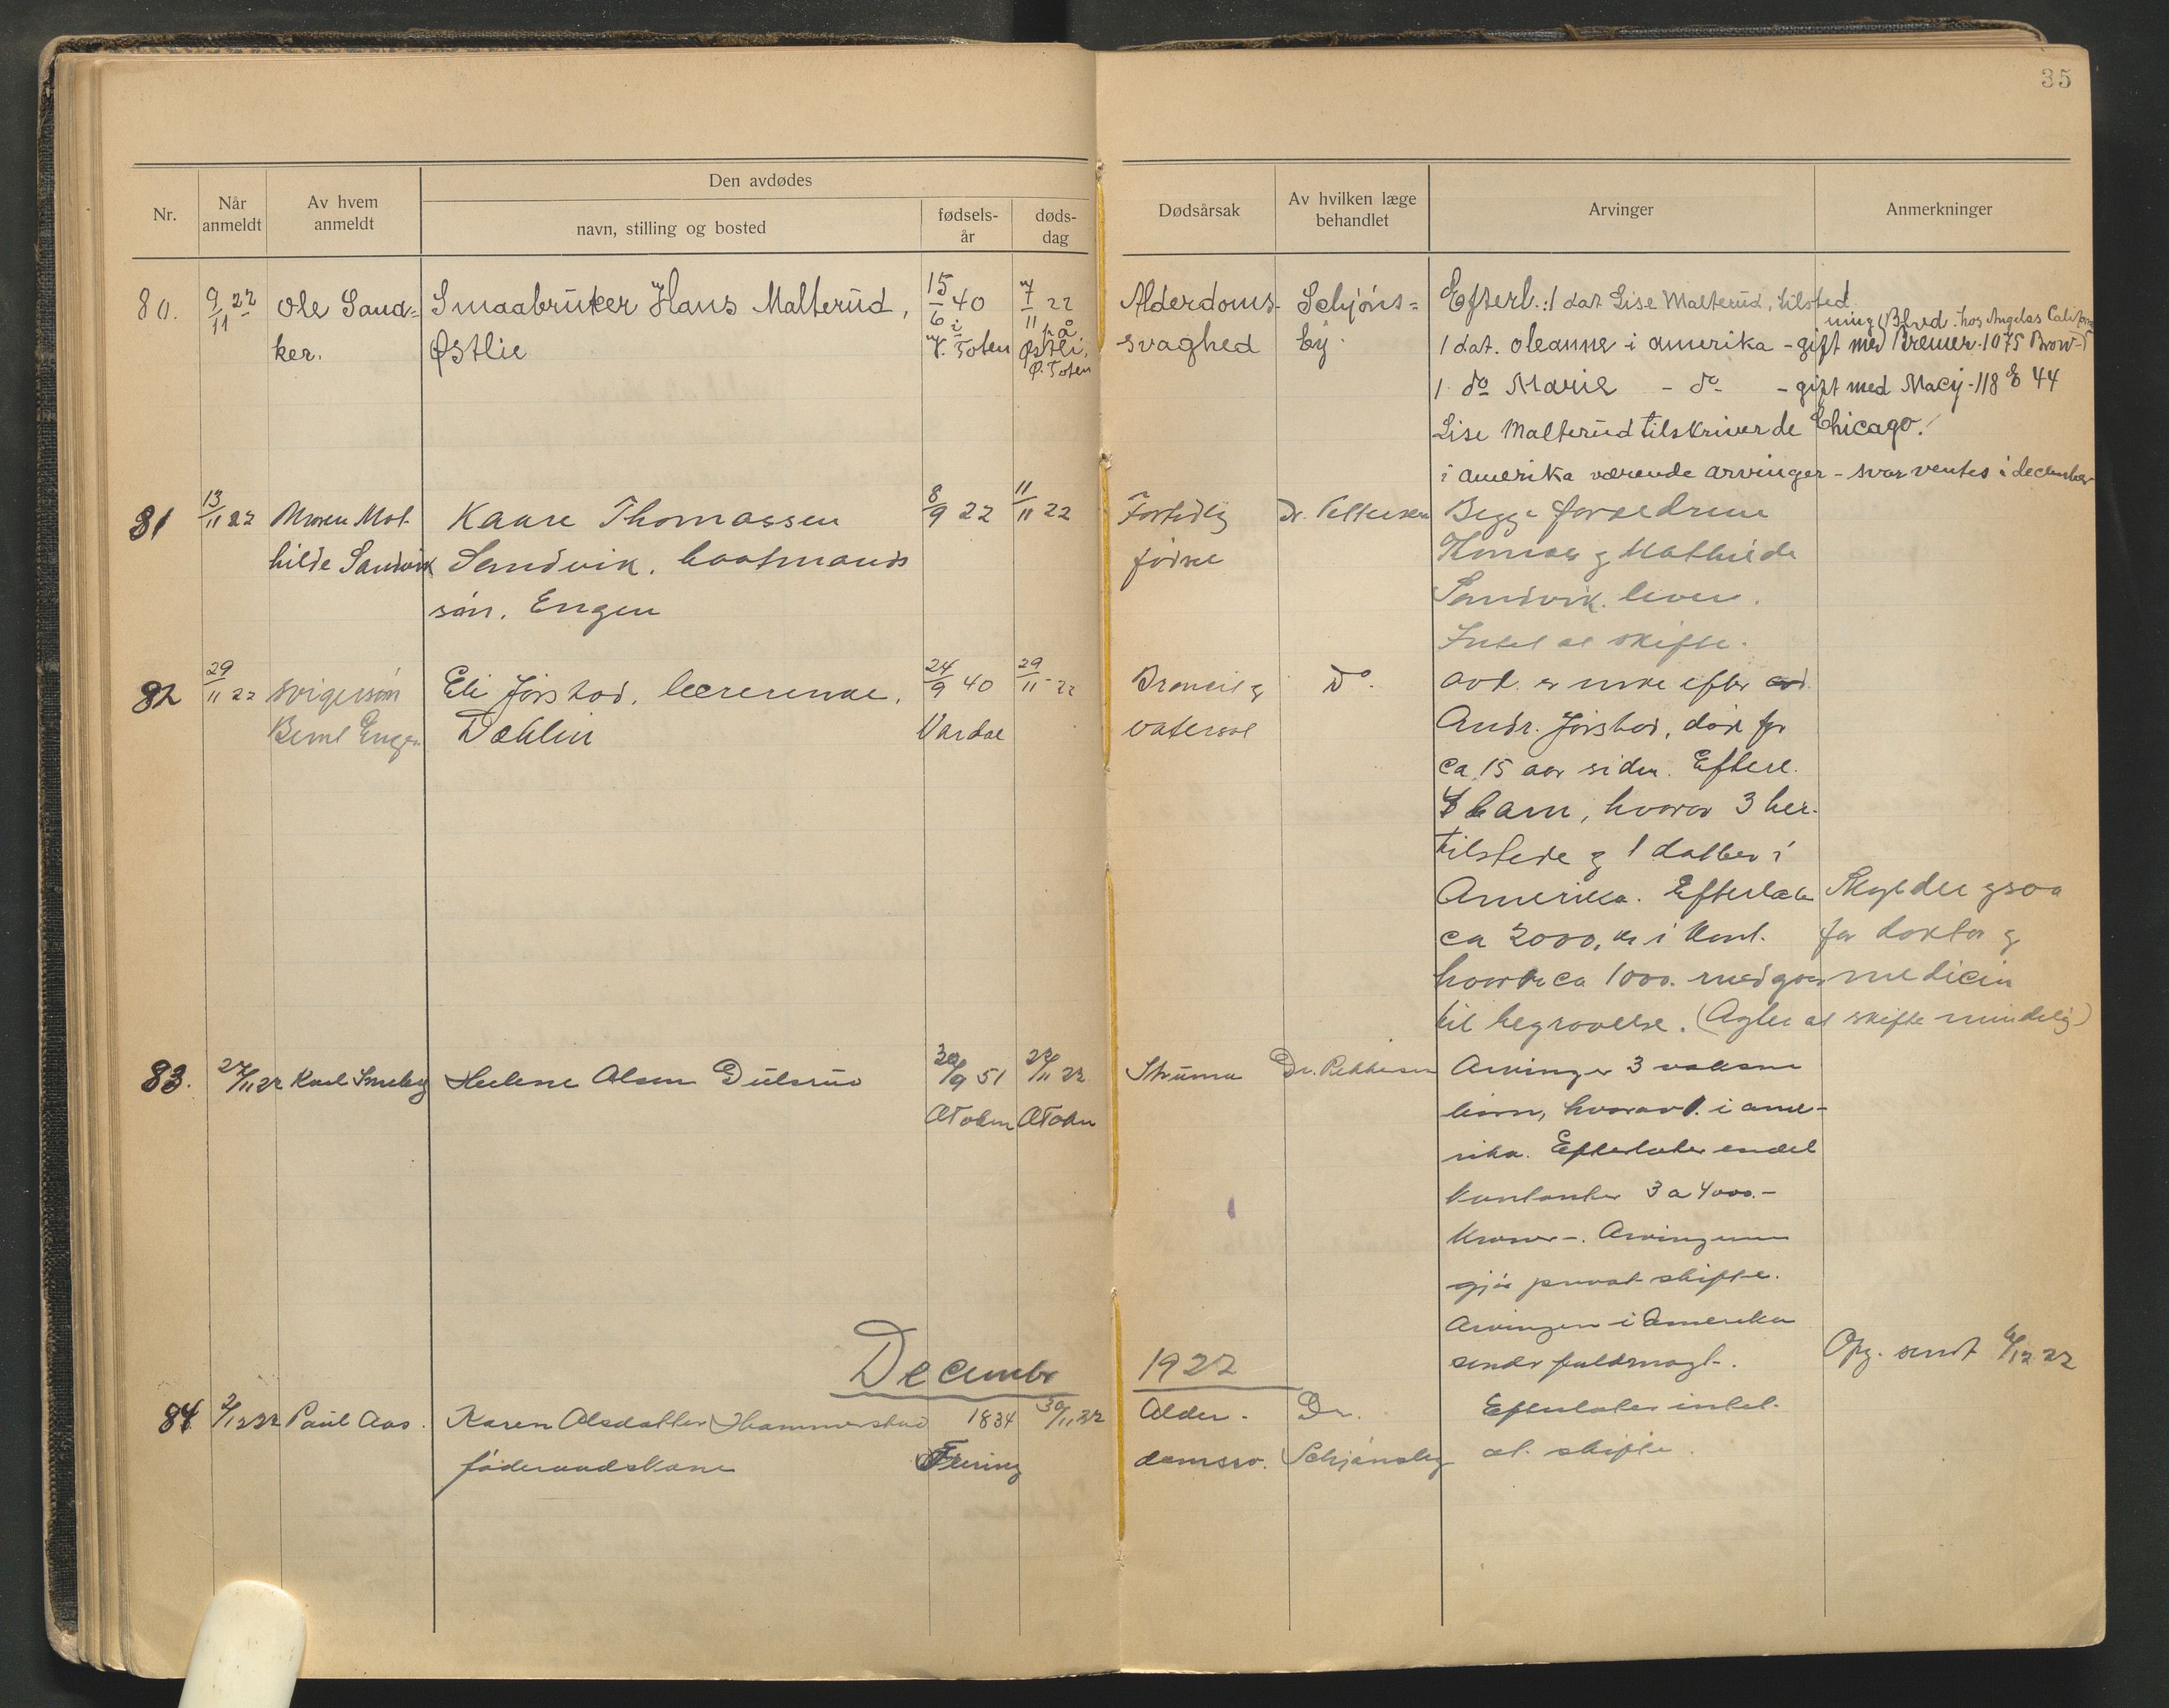 35
Nr.
Når anmeldt
Av hvem anmeldt
Den avdødes
navn, stilling og bosted
fødsels-år
døds-dag
Dødsårsak
Av hvilken læge behandlet
Arvinger
Anmerkninger
80. 9/11 22 Ole Sand= Smaabruker Hans Malterud, 15/6 40 7/11 22 Alderdoms- Schjøns= Efterl.: 1 dat Lise Malterud, tilsted
ning Blvd. hos Angelas Californ
ker. Østlie i V. Toten på Østli, Ø. Toten svaghed by. 1 dat. Oleanne i Amerika - gift med Bremer. 1075 Brow-
1 do Marie - do - gift med Macy - 118 E 44
Lise Malterud tilskriver de Chicago.
i Amerika værende arvinger - svar ventes i december
81 13/11 22 Maren Mat- Kaare Thomassen 8/9 22 11/11 22 Fortidlig Dr. Pettersen Begge forældrene
hilde Sandvik Sandvik, baatmands fødsel Thomas g Mathilde
søn, Engen Sandvik lever.
Intet at skifte.
82 29/11 22 svigersøn Eli Jørstad, lærerenke, 24/9 40 29/11 22 Do. avd. er enke efter
Bernt Engen Dæhlin Vardal Andr. Jørstad, død for
ca 15 aar siden. Efterl.
4 barn, hvorav 3 her-
tilstede g 1 datter i
Amerika. Efterlater Skylder gsaa
ca 2000, kr i kont. for doktor g
hvorav ca 1000. medgaar medicin
til begravelse. (Agter at skifte mindelig)
83. 27/11 22 Karl Smeby Helene Olsen Dulsrud 30/9 51 27/11 22 Struma Dr. Pettersen Arvinger 3 voksne
Ø Toten Ø Toten barn, hvorav 1. i ame-
rika. Efterlater endel
kontanter 3 a 4000.-
Kroner -. Arvingerne
gjør privat skifte.
Arvingen i Amerika
December 1922 sender fuldmagt. Opg. sendt 6/12 22
84 2/12 22 Paul Aas. Karen Olsdatter Hammerstad 1834 30/11 22 Alder- Dr. Efterlater intet
føderaadskone Feiring domssv. Schjønsby at skifte.